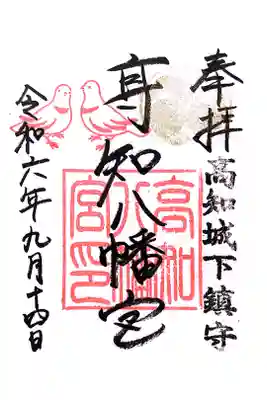 奉拝
高知城下鎮守
高知八幡宮
高知八幡宮印
令和六年九月十四日